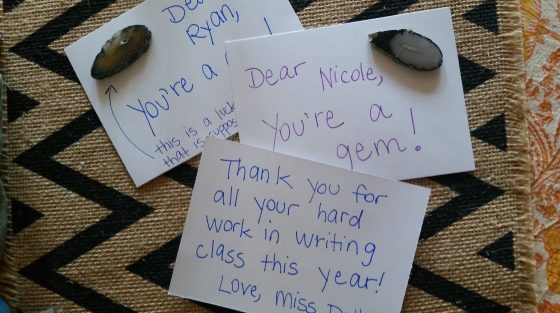 Ryan,
You're a
this is a
that is
Dear Nicole,
You're a
gem!
Thank you for
all your hard
work in writing
class this year!
Love, miss